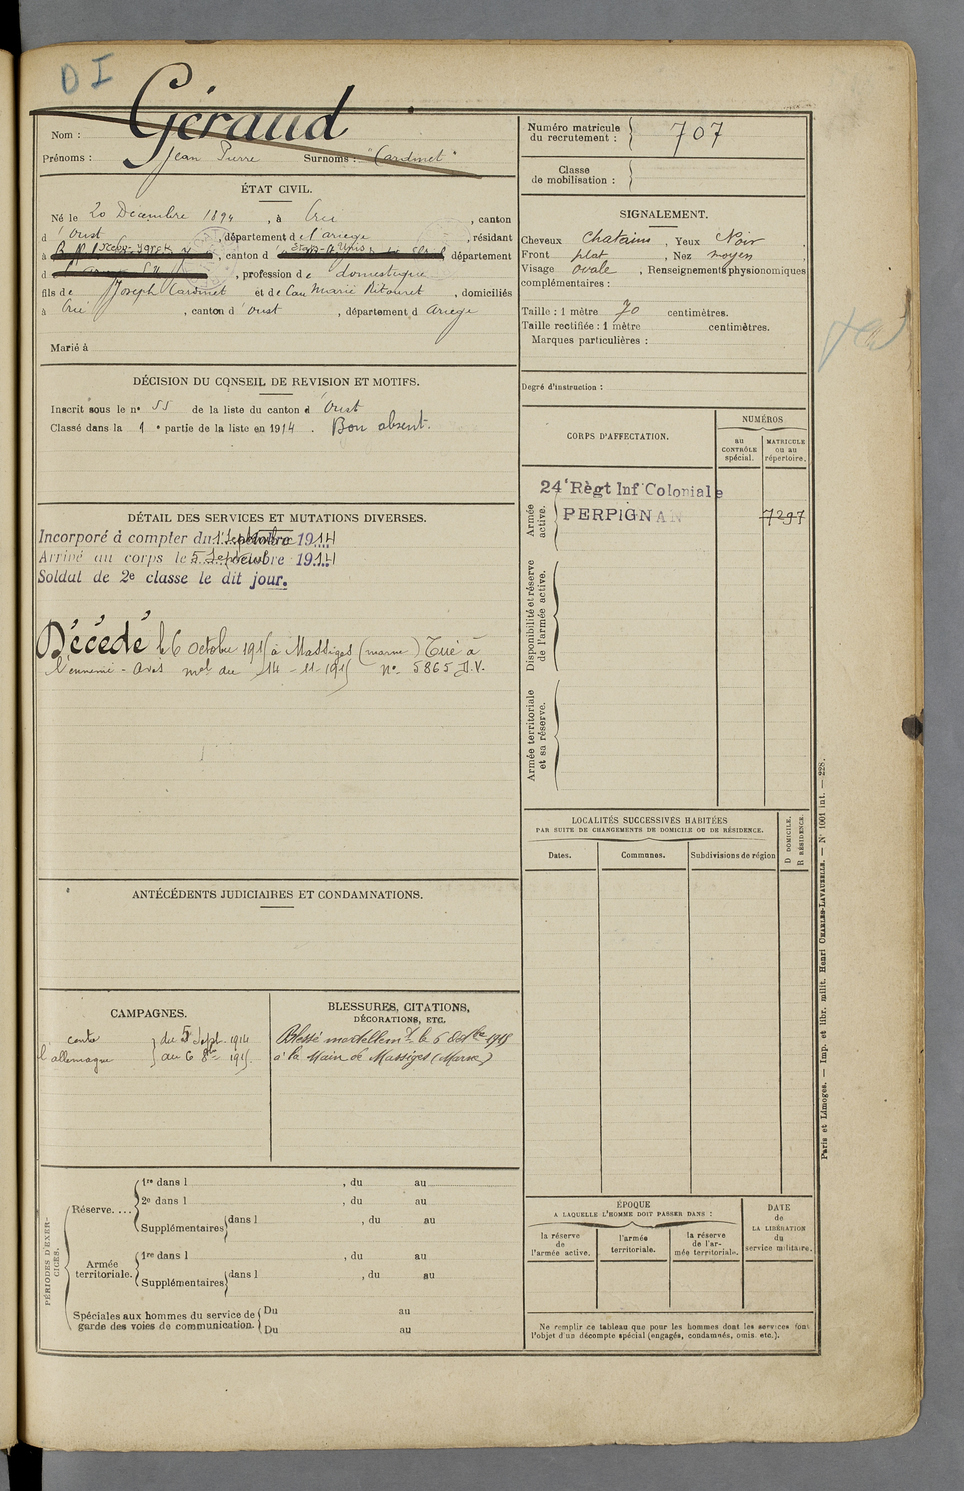 D I
Géraud
Nom :
Prénoms : Jean Pierre Surnoms : "Cardinet"
ÉTAT CIVIL.
Né le 20 Décembre 1894, à Ercé, canton
d'Oust, département de l'ariège, résidant
à New-York, canton d États-Unis département
d , profession de domestique
fils de Joseph Cardinet et de Cau Marie Ritouret, domiciliés
à Ercé, canton d'oust, département d Ariège
Marié à
DÉCISION DU CONSEIL DE REVISION ET MOTIFS.
Inscrit sous le n° 55 de la liste du canton d'Oust
Classé dans la 1e partie de la liste en 1914. Bon absent.
DÉTAIL DES SERVICES ET MUTATIONS DIVERSES.
Incorporé à compter du 1 Septembre 1914
Arrivé au corps le 5 Septembre 1914
Soldat de 2e classe le dit jour.
Décédé le 6 octobre 1915 à Massiges (marne) Tué à
l'ennemi - avis mel du 14-11-1915 n° 5865 D.V.
ANTÉCÉDENTS JUDICIAIRES ET CONDAMNATIONS.
CAMPAGNES.
contre
l'allemagne
du 5 Sept. 1914
au 6 8bre 1915.
BLESSURES, CITATIONS,
DÉCORATIONS, ETC.
Blessé mortellemt le 6 Octbre 1915
à la Main de Massiges (Marne)
PÉRIODES D'EXER-
CICES.
Réserve....
1re dans l , du au
2e dans l , du au
Supplémentaires dans l , du au
Armée
territoriale.
1re dans l , du au
Supplémentaires dans l , du au
Spéciales aux hommes du service de
garde des voies de communication.
Du au
Du au
Numéro matricule
du recrutement : 707
Classe
de mobilisation :
SIGNALEMENT.
Cheveux chatains, Yeux Noir,
Front plat, Nez moyen,
Visage ovale, Renseignements physionomiques
complémentaires :
Taille : 1 mètre 70 centimètres.
Taille rectifiée : 1 mètre centimètres.
Marques particulières :
Degré d'instruction :
CORPS D'AFFECTATION.
NUMÉROS
au
CONTRÔLE
spécial.
MATRICULE
ou au
répertoire.
24e Règt Inf Coloniale
PERPIGNAN
7297
Armée
active.
Disponibilité et réserve
de l'armée active.
Armée territoriale
et sa réserve.
LOCALITÉS SUCCESSIVES HABITÉES
PAR SUITE DE CHANGEMENTS DE DOMICILE OU DE RÉSIDENCE.
Dates.
Communes.
Subdivisions de région
D DOMICILE.
R RÉSIDENCE.
ÉPOQUE
A LAQUELLE L'HOMME DOIT PASSER DANS :
la réserve
de
l'armée active.
l'armée
territoriale.
la réserve
de l'ar-
mée territoriale.
DATE
de
LA LIBÉRATION
du
service militaire.
Ne remplir ce tableau que pour les hommes dont les services font
l'objet d'un décompte spécial (engagés, condamnés, omis, etc.).
Paris et Limoges. — Imp. et libr. milit. Henri CHARLES-LAVAUZELLE. — N° 1001 int. — 228.